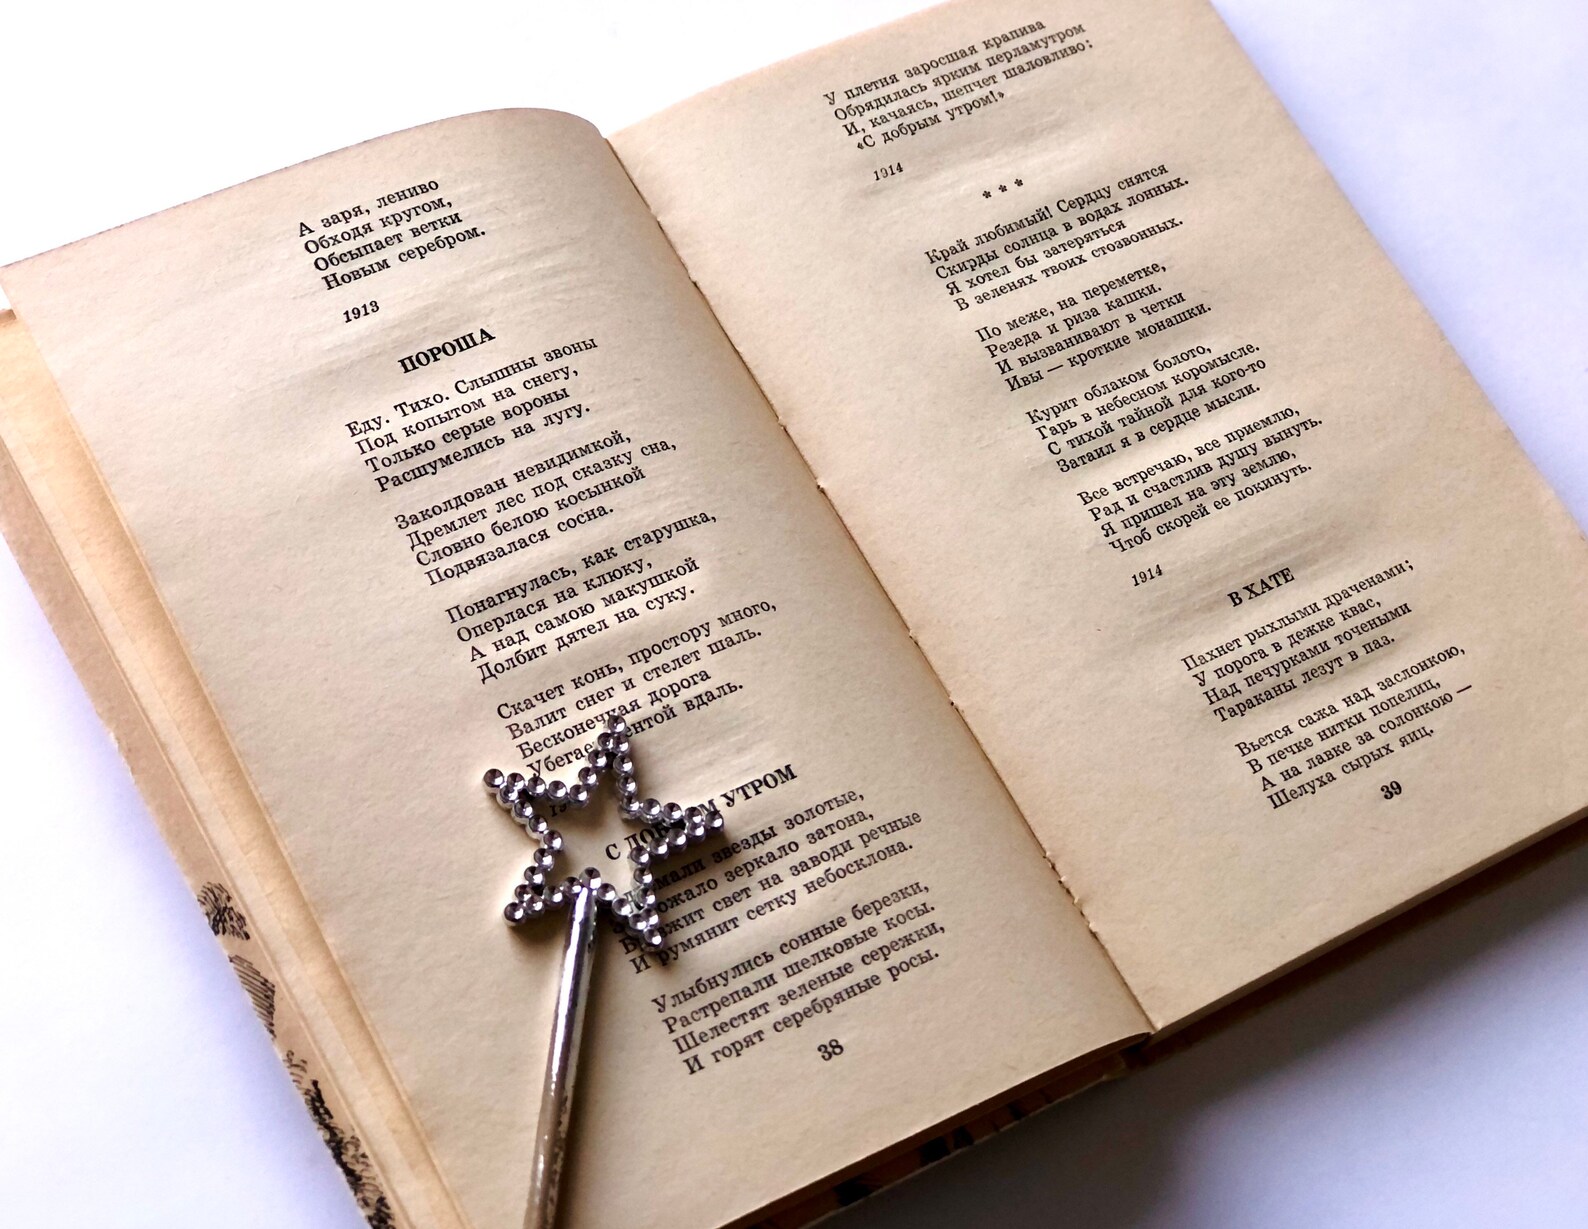 А заря, лениво
Обходя кругом,
Обсыпает ветки
Новым серебром.
1913
ПОРОША
Еду. Тихо. Слышны звоны
Под копытом на снегу,
Только серые вороны
Расшумелись на лугу.
Заколдован невидимкой,
Дремлет лес под сказку сна,
Словно белою косынкой
Подвязалася сосна.
Понагнулась, как старушка,
Оперлася на клюку,
А над самою макушкой
Долбит дятел на суку.
Скачет конь, простору много,
Валит снег и стелет шаль.
Бесконечная дорога
Убегает лентой вдаль.
С ДОБРЫМ УТРОМ
звезды золотые,
зеркало затона,
Брезжит свет на заводи речные
И румянит сетку небосклона.
Улыбнулись сонные березки,
Растрепали шелковые косы.
Шелестят зеленые сережки,
И горят серебряные росы.
38
У плетня заросшая крапива
Обрядилась ярким перламутром
И, качаясь, шепчет шаловливо:
«С добрым утром!»
1914
* * *
Край любимый! Сердцу снятся
Скирды солнца в водах лонных.
Я хотел бы затеряться
В зеленях твоих стозвонных.
По меже, на переметке,
Резеда и риза кашки.
И вызванивают в четки
Ивы — кроткие монашки.
Курит облаком болото,
Гарь в небесном коромысле.
С тихой тайной для кого-то
Затаил я в сердце мысли.
Все встречаю, все приемлю,
Рад и счастлив душу вынуть.
Я пришел на эту землю,
Чтоб скорей ее покинуть.
1914
В ХАТЕ
Пахнет рыхлыми драченами;
У порога в дежке квас,
Над печурками точеными
Тараканы лезут в паз.
Вьется сажа над заслонкою,
В печке нитки попелиц,
А на лавке за солонкою —
Шелуха сырых яиц.
39